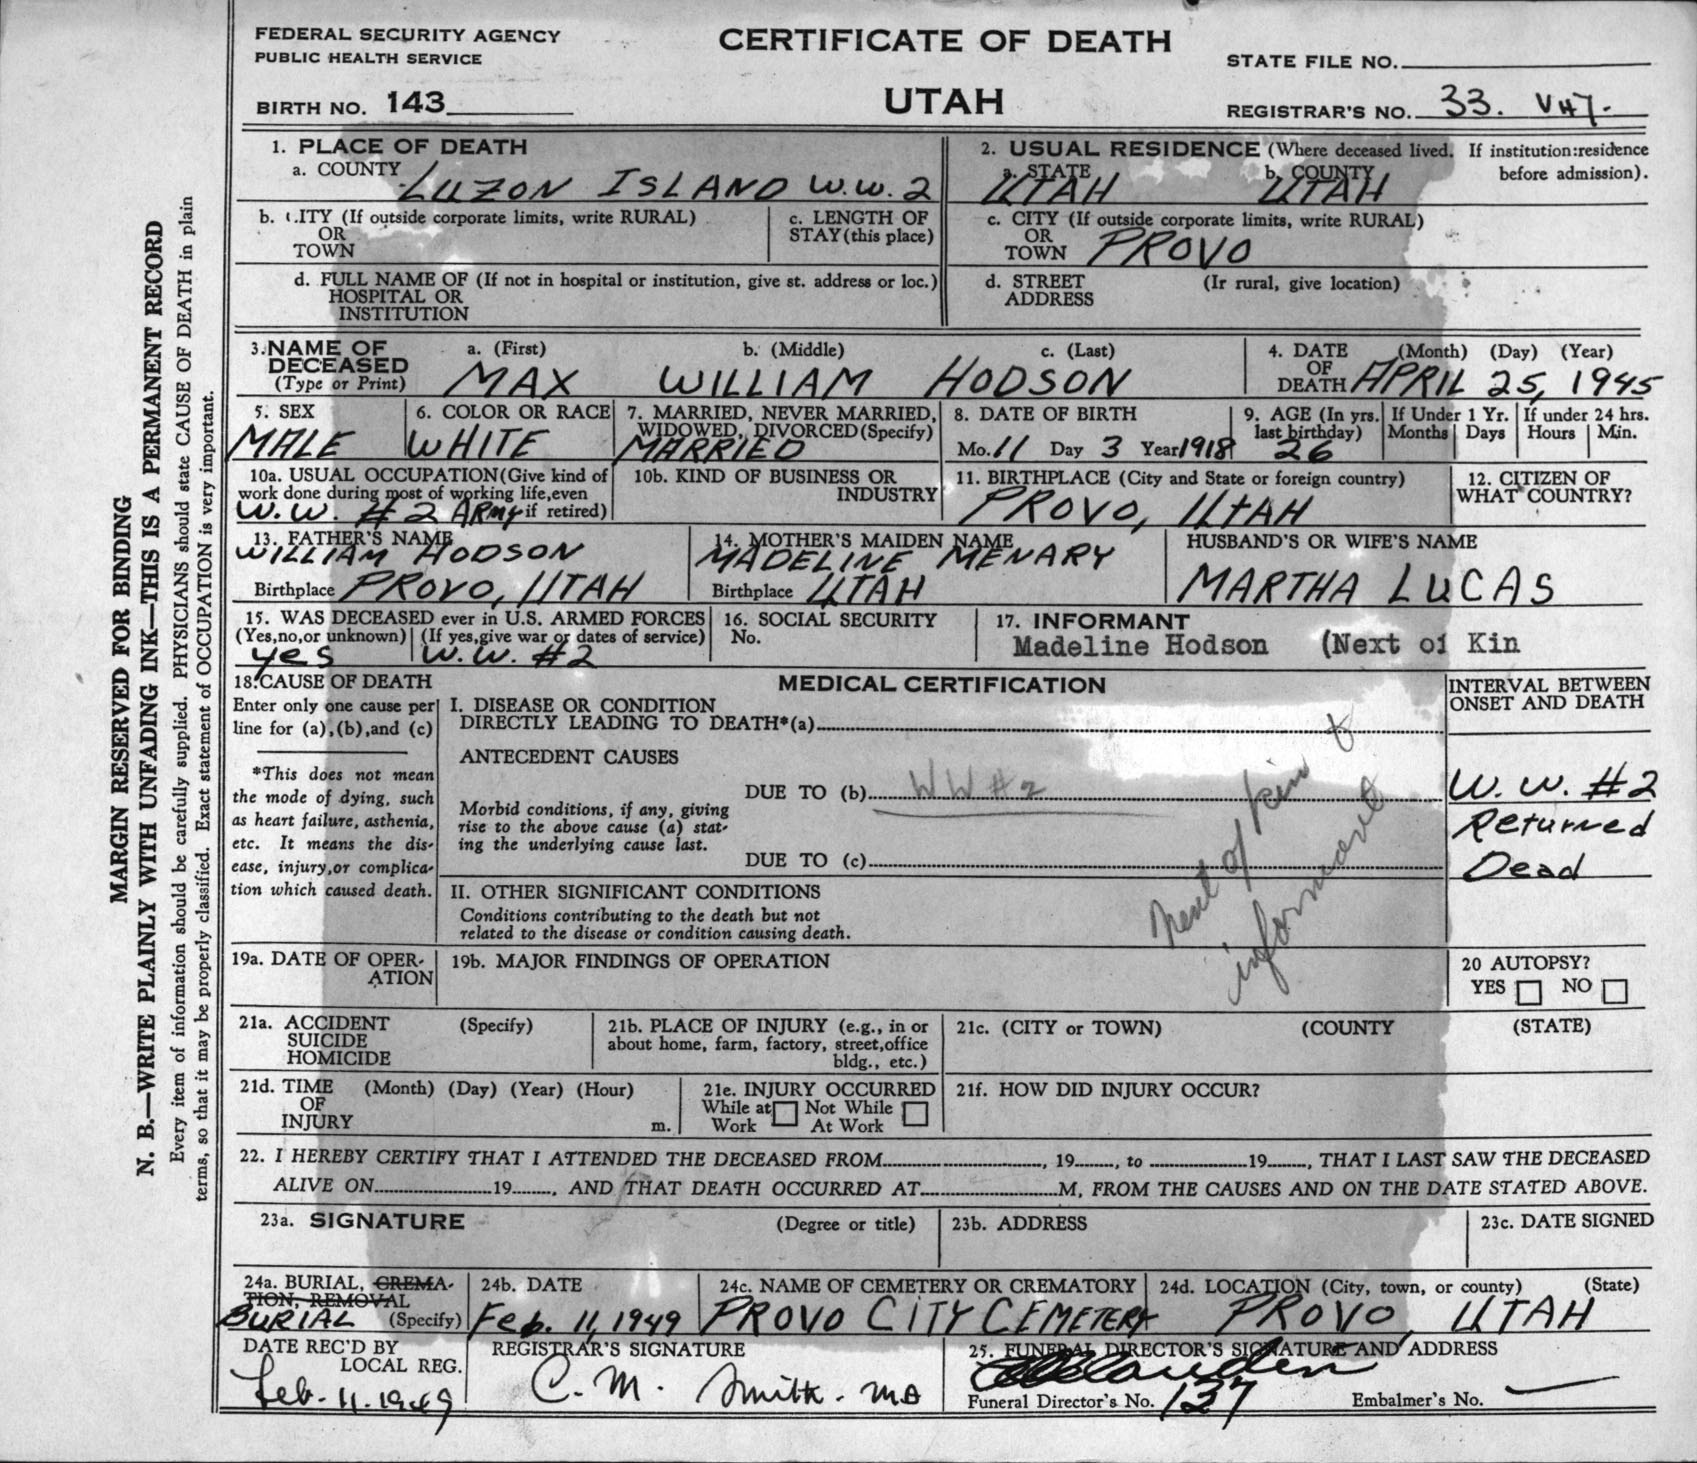 FEDERAL SECURITY AGENCY
PUBLIC HEALTH SERVICE
CERTIFICATE OF DEATH
UTAH
STATE FILE NO.
BIRTH NO. 143
REGISTRAR'S NO. 33.
1. PLACE OF DEATH
a. COUNTY LUZON ISLAND W.W.2
2. USUAL RESIDENCE (Where deceased lived. If institution:residence before admission).
a. STATE UTAH b. COUNTY UTAH
b. CITY (If outside corporate limits, write RURAL)
OR
TOWN
c. LENGTH OF
STAY (this place)
c. CITY (If outside corporate limits, write RURAL)
OR
TOWN PROVO
d. FULL NAME OF (If not in hospital or institution, give st. address or loc.)
HOSPITAL OR
INSTITUTION
d. STREET (Ir rural, give location)
ADDRESS
3. NAME OF
DECEASED
(Type or Print)
a. (First) b. (Middle) c. (Last)
MAX WILLIAM HODSON
4. DATE (Month) (Day) (Year)
OF
DEATH APRIL 25, 1945
5. SEX
MALE
6. COLOR OR RACE
WHITE
7. MARRIED, NEVER MARRIED,
WIDOWED, DIVORCED (Specify)
MARRIED
8. DATE OF BIRTH
Mo. 11 Day 3 Year 1918
9. AGE (In yrs.
last birthday)
26
If Under 1 Yr.
Months Days
If under 24 hrs.
Hours Min.
10a. USUAL OCCUPATION (Give kind of
work done during most of working life, even
if retired)
W.W. #2 ARMY
10b. KIND OF BUSINESS OR
INDUSTRY
11. BIRTHPLACE (City and State or foreign country)
PROVO, UTAH
12. CITIZEN OF
WHAT COUNTRY?
13. FATHER'S NAME
WILLIAM HODSON
Birthplace PROVO, UTAH
14. MOTHER'S MAIDEN NAME
MADELINE MENARY
Birthplace UTAH
HUSBAND'S OR WIFE'S NAME
MARTHA LUCAS
15. WAS DECEASED ever in U.S. ARMED FORCES
(Yes,no,or unknown) (If yes,give war or dates of service)
yes W.W. #2
16. SOCIAL SECURITY
No.
17. INFORMANT
Madeline Hodson (Next of Kin
18. CAUSE OF DEATH
Enter only one cause per
line for (a),(b),and (c)
*This does not mean
the mode of dying, such
as heart failure, asthenia,
etc. It means the dis-
ease, injury,or complica-
tion which caused death.
MEDICAL CERTIFICATION
I. DISEASE OR CONDITION
DIRECTLY LEADING TO DEATH*(a)
ANTECEDENT CAUSES
DUE TO (b) WW#2
Morbid conditions, if any, giving
rise to the above cause (a) stat-
ing the underlying cause last.
DUE TO (c)
next of kin
informed
INTERVAL BETWEEN
ONSET AND DEATH
W.W. #2
Returned
Dead
II. OTHER SIGNIFICANT CONDITIONS
Conditions contributing to the death but not
related to the disease or condition causing death.
19a. DATE OF OPER-
ATION
19b. MAJOR FINDINGS OF OPERATION
20 AUTOPSY?
YES NO
21a. ACCIDENT (Specify)
SUICIDE
HOMICIDE
21b. PLACE OF INJURY (e.g., in or
about home, farm, factory, street,office
bldg., etc.)
21c. (CITY or TOWN) (COUNTY (STATE)
21d. TIME (Month) (Day) (Year) (Hour)
OF
INJURY m.
21e. INJURY OCCURRED
While at Not While
Work At Work
21f. HOW DID INJURY OCCUR?
22. I HEREBY CERTIFY THAT I ATTENDED THE DECEASED FROM , 19 , to 19 , THAT I LAST SAW THE DECEASED
ALIVE ON 19 , AND THAT DEATH OCCURRED AT M, FROM THE CAUSES AND ON THE DATE STATED ABOVE.
23a. SIGNATURE (Degree or title)
23b. ADDRESS
23c. DATE SIGNED
24a. BURIAL, CREMA-
TION, REMOVAL
BURIAL (Specify)
24b. DATE
Feb. 11, 1949
24c. NAME OF CEMETERY OR CREMATORY
PROVO CITY CEMETERY
24d. LOCATION (City, town, or county) (State)
PROVO, UTAH
DATE REC'D BY
LOCAL REG.
Feb. 11. 1949
REGISTRAR'S SIGNATURE
C. M. Smith. MD
25. FUNERAL DIRECTOR'S SIGNATURE AND ADDRESS
Funeral Director's No. 137 Embalmer's No.
MARGIN RESERVED FOR BINDING
N. B.—WRITE PLAINLY WITH UNFADING INK—THIS IS A PERMANENT RECORD
Every item of information should be carefully supplied. PHYSICIANS should state CAUSE OF DEATH in plain
terms, so that it may be properly classified. Exact statement of OCCUPATION is very important.